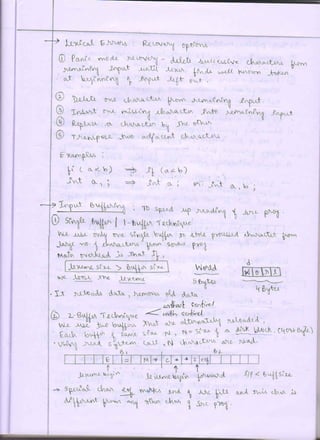 → Lexical Errors : Recovery options
① Panic mode recovery - delete successive characters from
remaining input until lexer finds well known token
at beginning of input left out.
② Delete one character from remaining input.
③ Insert one missing character into remaining input
④ Replace a character by the other
⑤ Transpose two adjacent characters.
Examples :
fi ( a < b ) ⇒ if (a < b)
int a , ; ⇒ int a ; int a, b ;
→ Input Buffering : To speed up reading of src prog.
① Single buffer | 1-Buffer Technique
We use only one single buffer to store processed character from
large no. of characters from source prog
Main overhead is that if,
lexeme size > buffer size World d
we lose the lexeme W o r l
5 Bytes 4 Bytes
• It reloads data, removes old data
without sentinel
② 2-Buffer Technique with sentinel
We use two buffers that are alternatively reloaded.
Each buffer of same size N, N = size of a disk block. (4096 Byte)
• Using read system call, N characters are read.
B1 B2
E = M * C * * 2 eof
↑ ↑
lexeme begin forward
→ special char eof marks end of src file and this char is
different from any other char of src prog.